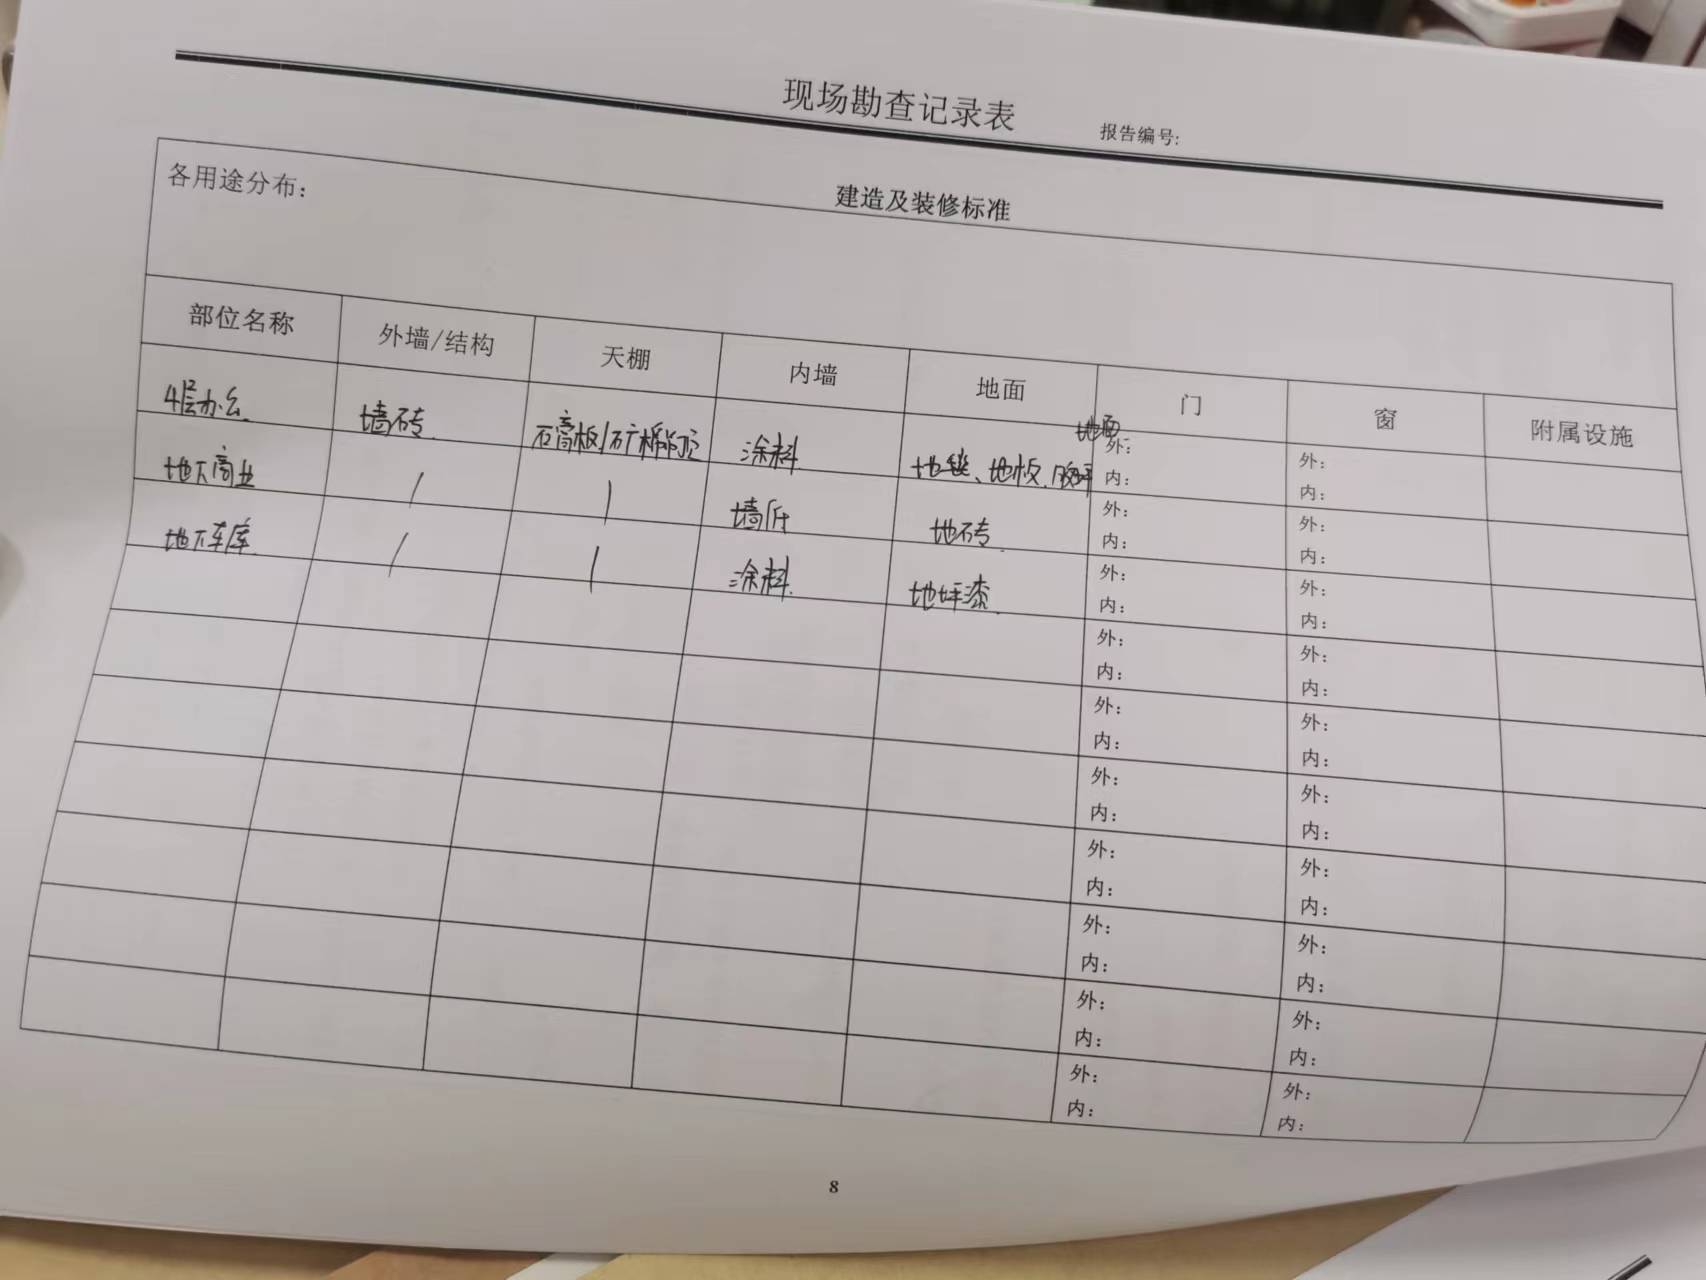 现场勘查记录表
报告编号:
建造及装修标准
各用途分布：
部位名称 外墙/结构 天棚 内墙 地面 门 窗 附属设施
4层办公 墙砖 石膏板/石矿棉吊顶 涂料 地毯、地板、胶坪 外： 内： 外： 内：
地下商业 / / 墙 地砖 外： 内： 外： 内：
地下车库 / / 涂料 地坪漆 外： 内： 外： 内：
外： 内： 外： 内：
外： 内： 外： 内：
外： 内： 外： 内：
外： 内： 外： 内：
外： 内： 外： 内：
外： 内： 外： 内：
外： 内： 外： 内：
8